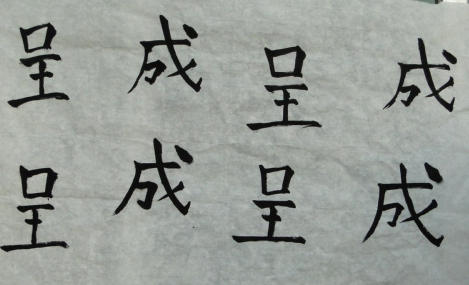 呈成呈成
呈成呈成